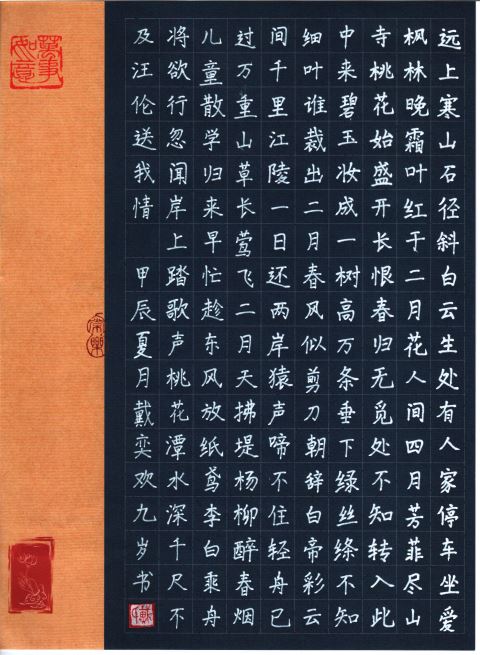 远上寒山石径斜白云生处有人家停车坐爱
枫林晚霜叶红于二月花人间四月芳菲尽山
寺桃花始盛开长恨春归无觅处不知转入此
中来碧玉妆成一树高万条垂下绿丝绦不知
细叶谁裁出二月春风似剪刀朝辞白帝彩云
间千里江陵一日还两岸猿声啼不住轻舟已
过万重山草长莺飞二月天拂堤杨柳醉春烟
儿童散学归来早忙趁东风放纸鸢李白乘舟
将欲行忽闻岸上踏歌声桃花潭水深千尺不
及汪伦送我情 甲辰夏月戴奕欢九岁书
萬事
如意